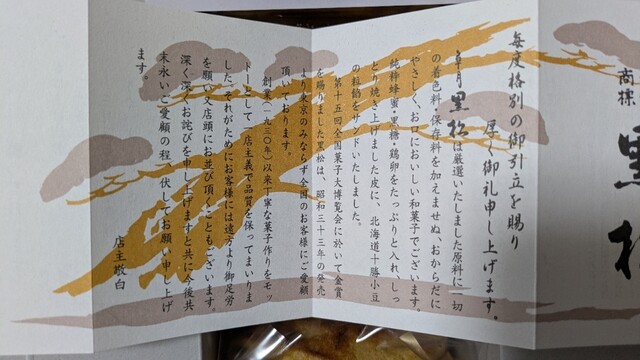 商標
黒松
毎度格別の御引立を賜り
厚く御礼申し上げます。
草月黒松は厳選いたしました原料に一切
の着色料・保存料を加えませぬ、おからだに
やさしく、お口においしい和菓子でございます。
純粋蜂蜜・黒糖・鶏卵をたっぷりと入れ、しっ
とり焼き上げました皮に、北海道十勝小豆
の粒餡をサンドいたしました。
第十五回全国菓子大博覧会に於いて金賞
を賜りました黒松は、昭和三十三年の発売
より東京のみならず全国のお客様にご愛顧
頂いております。
創業(一九三〇年)以来丁寧な菓子作りをモッ
トーとして一店主義で品質を保ってまいりま
した。それがためにお客様には遠方より御足労
を願い又店頭にお並び頂くこともございます。
深く深くお詫びを申し上げますと共に今後共
末永いご愛顧の程、伏してお願い申し上げ
ます。
店主敬白